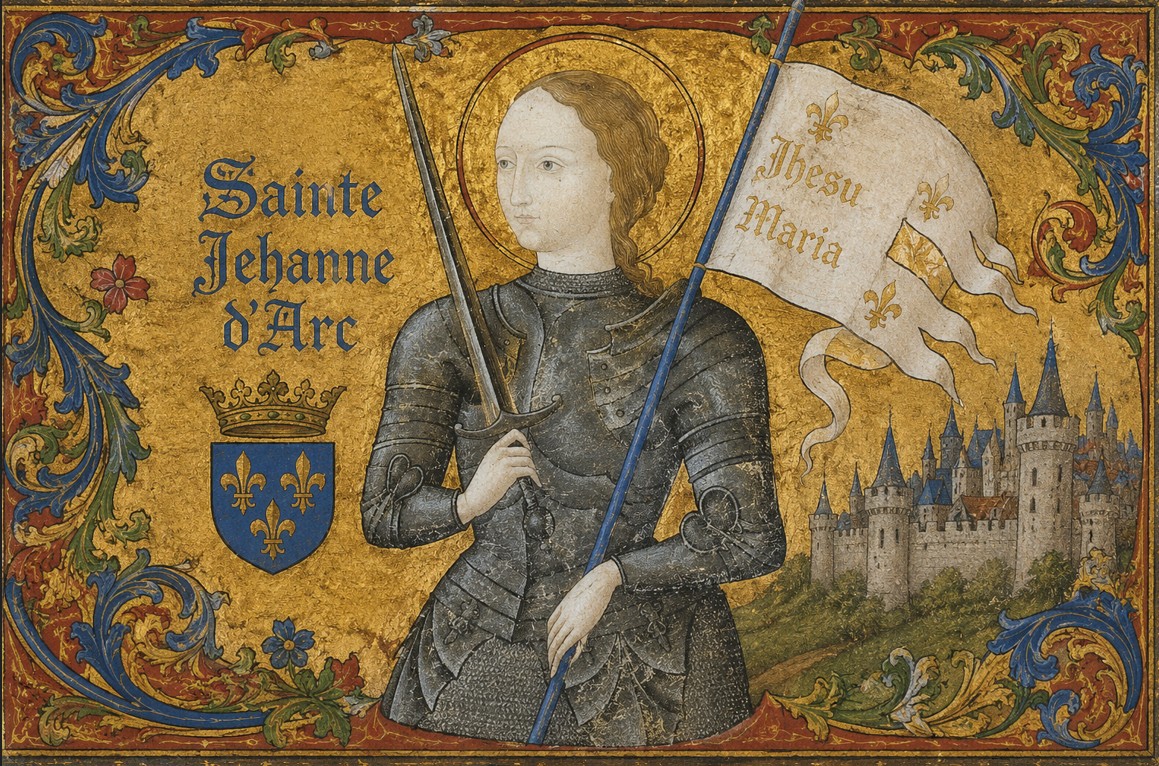 Sainte
Jehanne
d'Arc
Jhesu
Maria